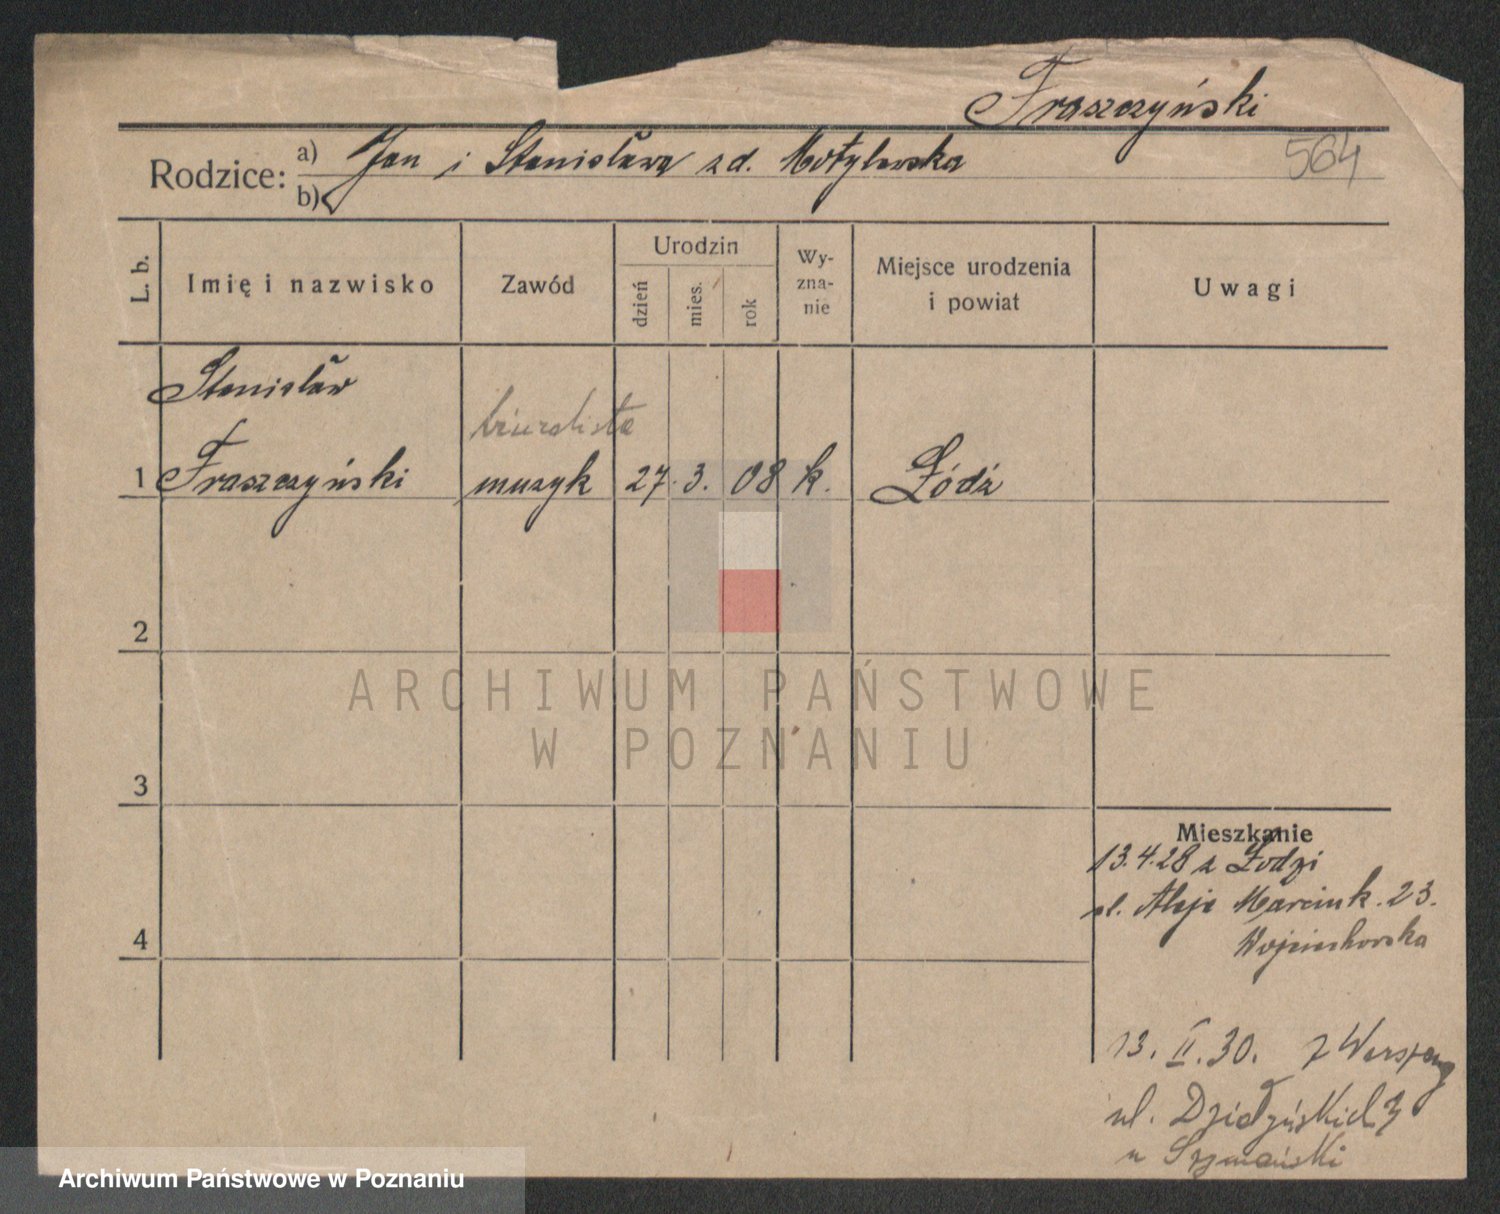 Fraszczyński
Rodzice: a) Jan i Stanisława zd. Motylewska
b)
564
L. b.
Imię i nazwisko
Zawód
Urodzin
dzień
mies.
rok
Wy-
zna-
nie
Miejsce urodzenia
i powiat
Uwagi
Stanisław
biuralista
1 Fraszczyński muzyk 27. 3. 08 k. Łódź
2
3
4
Mieszkanie
13.4.28 z Łodzi
ul. Aleje Marcink. 23.
Wojciechowska
13. II. 30. z Warszawy
ul. Działyńskich 3
u Szymański
ARCHIWUM PAŃSTWOWE
W POZNANIU
Archiwum Państwowe w Poznaniu